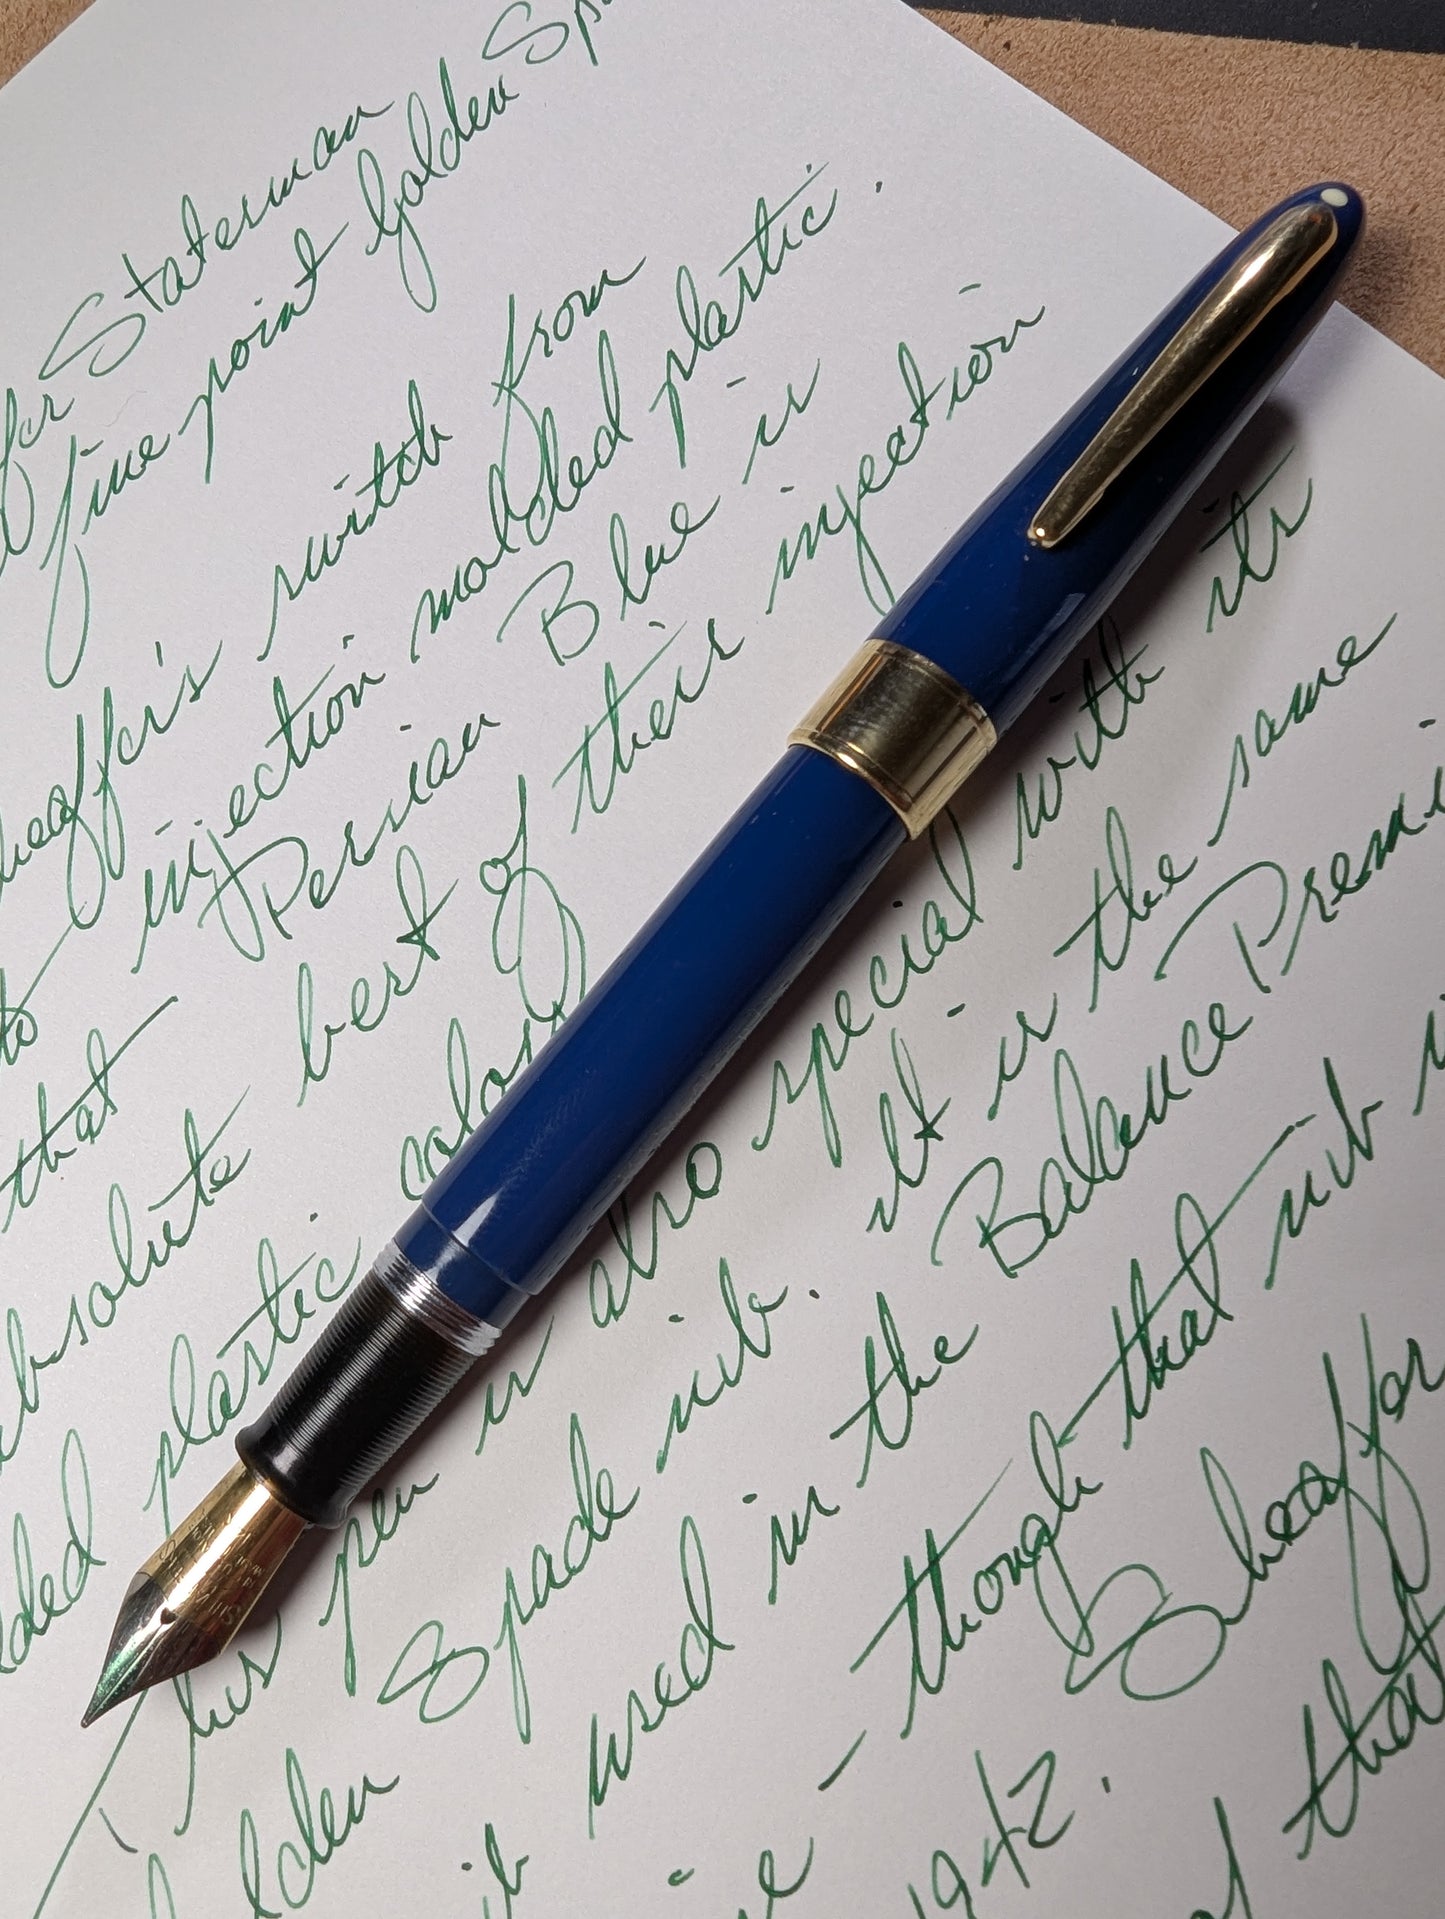 Statesman
fine point Golden
switch from
to injection molded plastic.
that Persian Blue is
absolute best of their injection
plastic
This pen is also special with its
Golden Spade nib. It is the same
nib used in the Balance
– though that nib
1942. Sheaffer
that